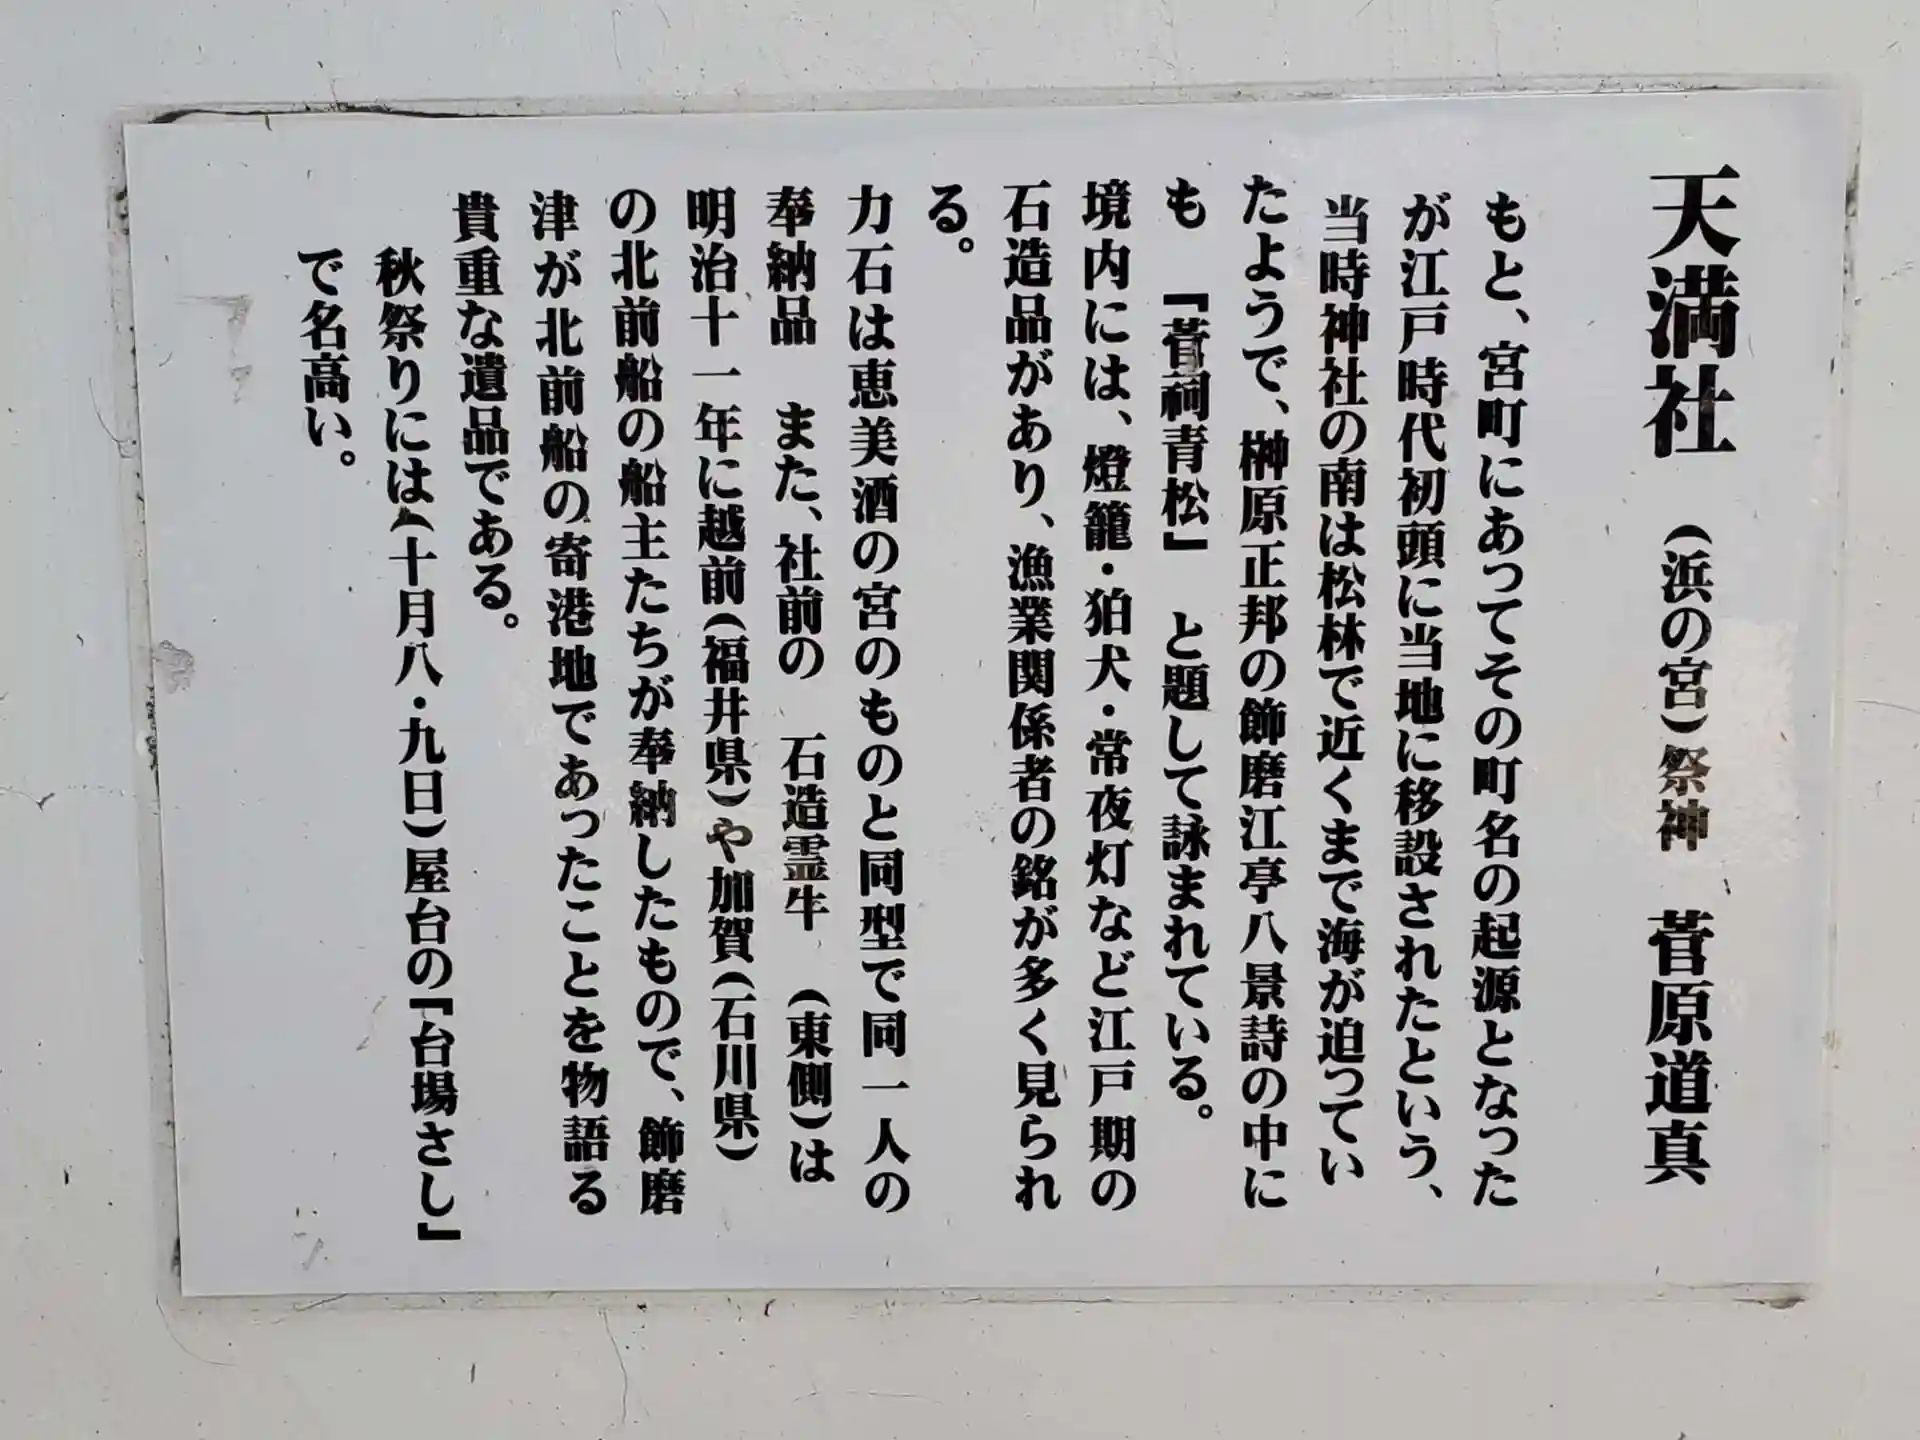 天満社　(浜の宮)祭神　菅原道真
もと、宮町にあってその町名の起源となった
が江戸時代初頭に当地に移設されたという、
当時神社の南は松林で近くまで海が迫ってい
たようで、榊原正邦の飾磨江亭八景詩の中に
も　『菅祠青松』　と題して詠まれている。
境内には、燈籠・狛犬・常夜灯など江戸期の
石造品があり、漁業関係者の銘が多く見られ
る。
力石は恵美酒の宮のものと同型で同一人の
奉納品　また、社前の　石造霊牛　(東側)は
明治十一年に越前(福井県)や加賀(石川県)
の北前船の船主たちが奉納したもので、飾磨
津が北前船の寄港地であったことを物語る
貴重な遺品である。
秋祭りには(十月八・九日)屋台の『台場さし』
で名高い。